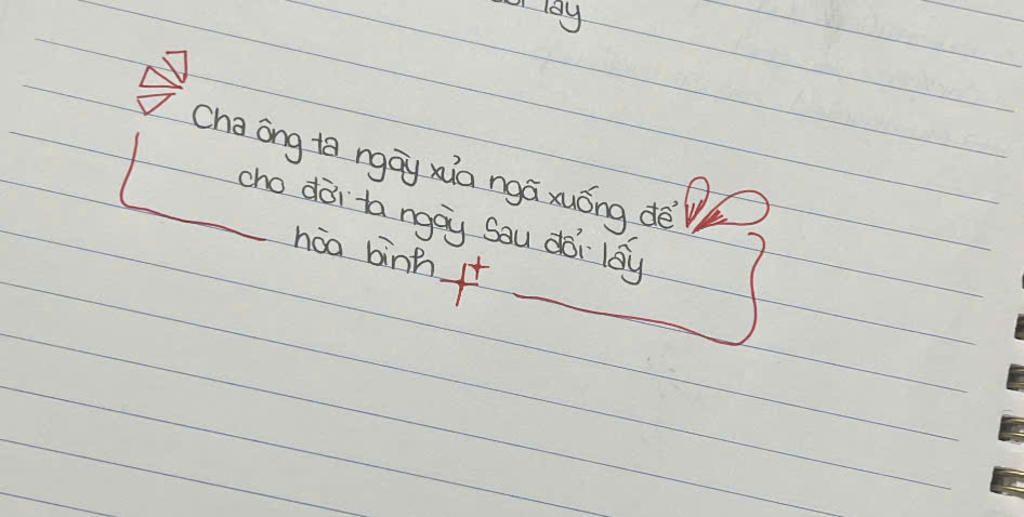 lấy
Cha ông ta ngày xửa ngã xuống để
cho đời ta ngày sau đổi lấy
hòa bình